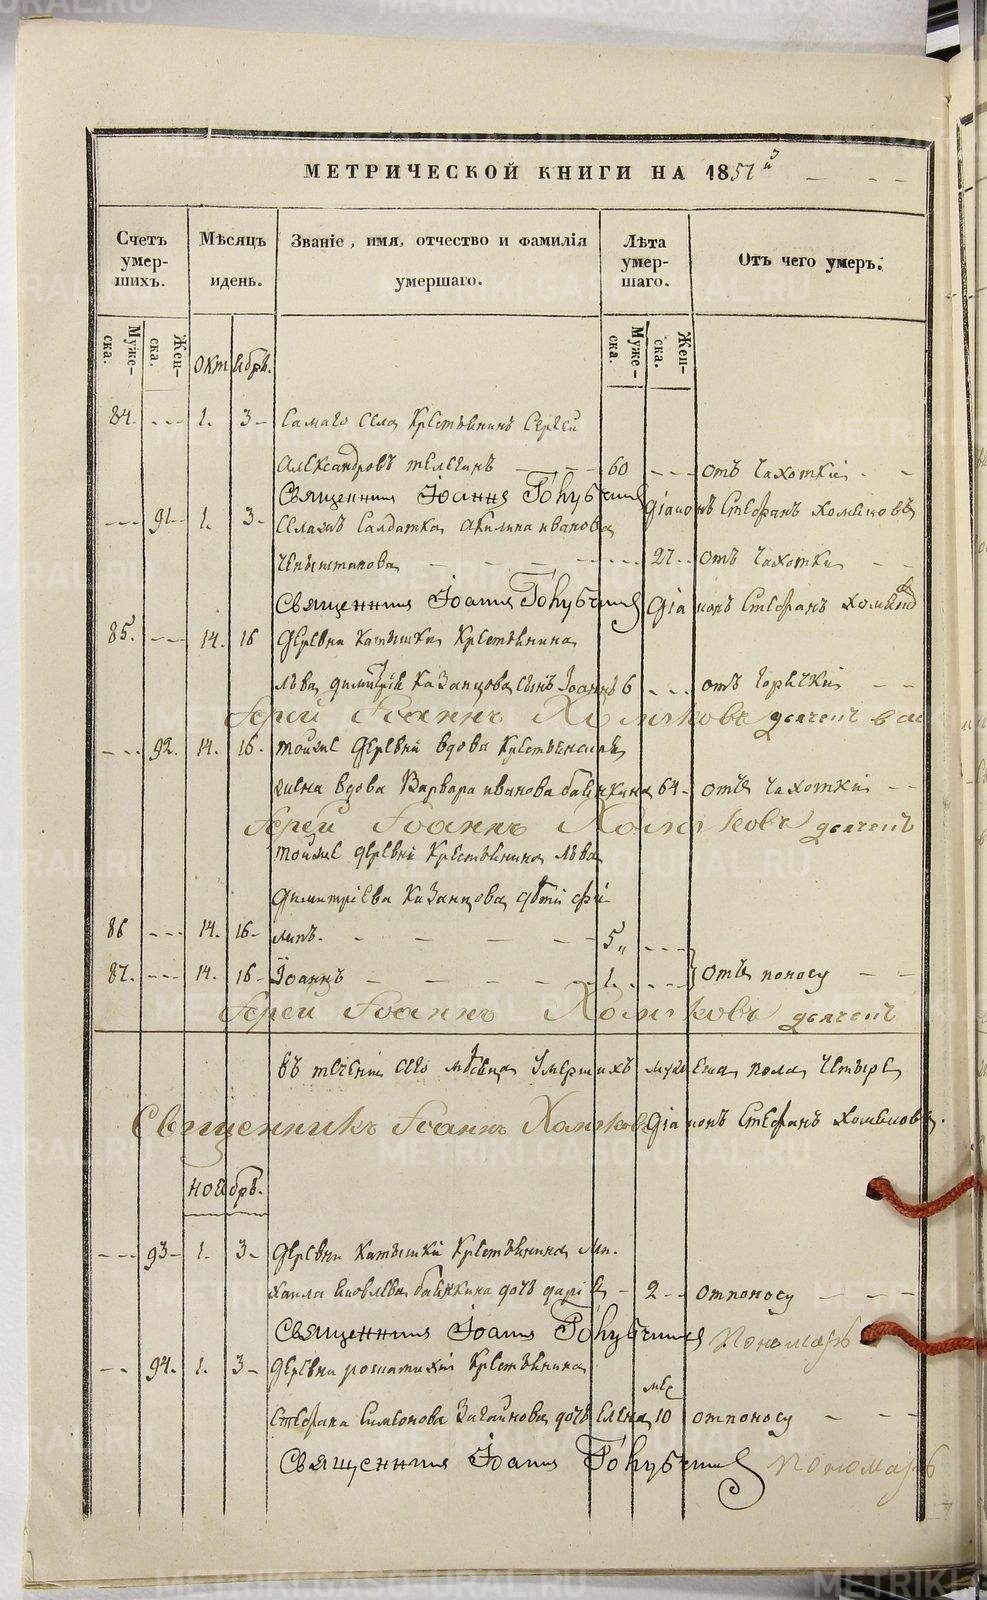 МЕТРИЧЕСКОЙ КНИГИ НА 1851й
Счетъ умер- шихъ.
Мѣсяцъ идень.
Званіе, имя, отчество и фамилія умершаго.
Лѣта умер- шаго.
Отъ чего умеръ.
Муже- ска.
Жен- ска.
Муже- ска.
Жен- ска.
Октябрь.
84. --- 1. 3- Самаго села крестьянинъ Сергей
Александровъ Телегинъ --- 60 --- отъ чахотки - -
Священникъ Іоаннъ Голубчик
діаконъ Стефанъ Хомяковъ
--- 91- 1. 3- Селахъ Салдатка Акилина иванова
--- 27.. отъ чахотки - -
Священникъ Іоаннъ Голубчик діаконъ Стефанъ Хомяков
85. --- 14. 16 деревни Катышки крестьянина
льва димитріе Казанцова сынъ Іоаннъ 6 --- отъ горячки - -
Іерей Іоаннъ Хомяковъ дьячекъ вас
--- 92. 14. 16- тойже деревни вдова крестьянская
жена вдова Варвара иванова баянкина 64- отъ чахотки - -
Іерей Іоаннъ Хомяковъ дьячекъ
тойже деревни крестьянина льва
димитріева Казанцова дѣти фи-
86 --- 14. 16- липъ. - - - - 5" ---
87. --- 14. 16- Іоаннъ - - - - 1. --- отъ поносу - -
Іерей Іоаннъ Хомяковъ дьячекъ
въ теченіи сего мѣсяца умершихъ мужеска пола четыре
Священникъ Іоаннъ Хомяков діаконъ Стефанъ Хомяковъ.
ноябрь.
--- 93- 1. 3- деревни катышки крестьянина Ми-
хаила Яковлева баянкина дочь дарія - 2 -- отпоносу - - -
Священникъ Іоаннъ Голубчик Пономарь
-- 94. 1. 3- деревни крестьянина
мес
Стефана Симеонова Загайнова дочь Елена 10 отпоносу - - -
Священникъ Іоаннъ Голубчик Пономарь
METRIKI.GASO-URAL.RU